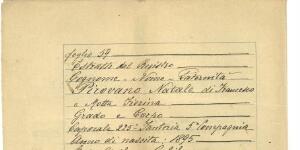 foglio 59
Estratto del Registro
Cognome - Nome - Paternità
Pirovano Natale di Francesco
e Motta Pierina
Grado e Corpo
Caporale 225° Fanteria 5° Compagnia
Anno di nascita: 1895